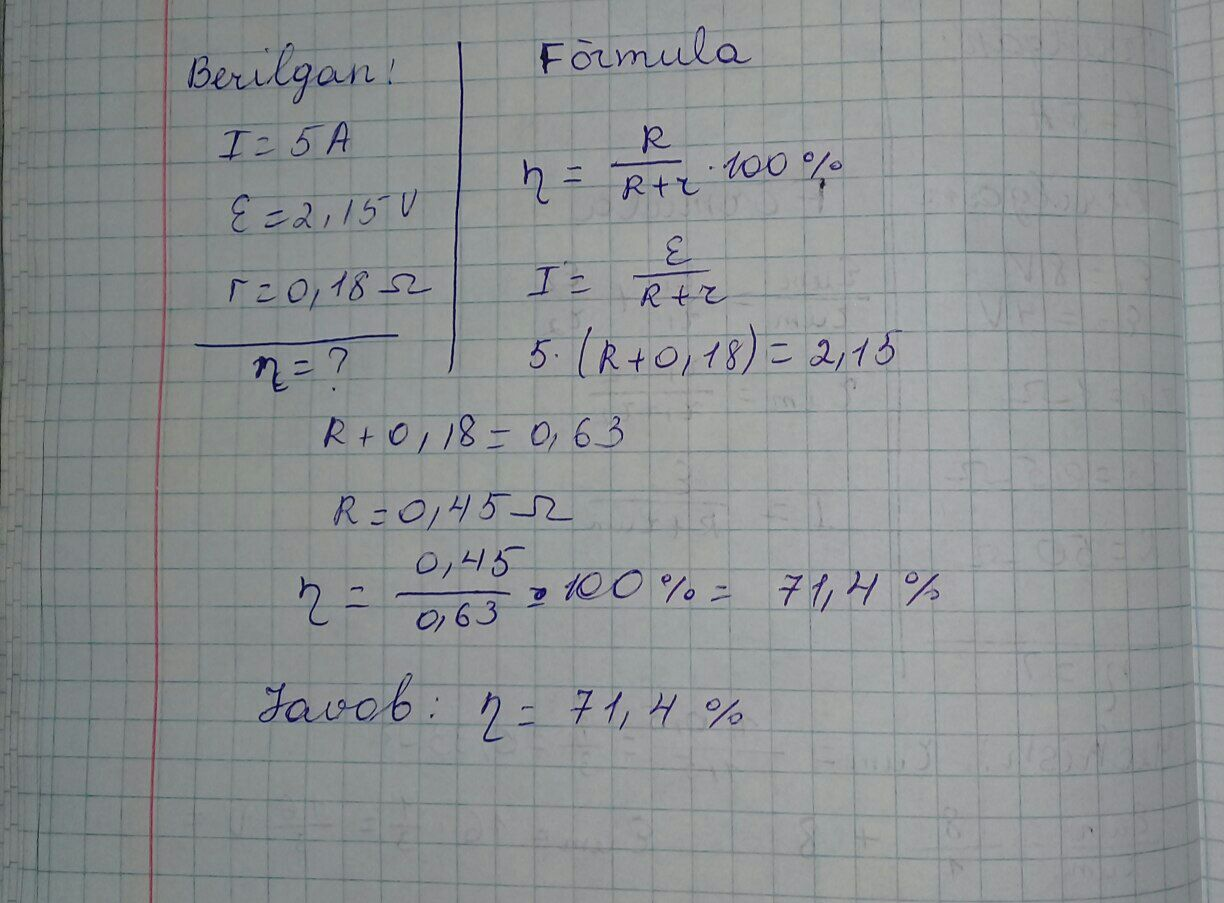 Berilgan:
I = 5A
ε = 2,15 V
r = 0,18 Ω
η = ?
Formula
η = R / (R + r) · 100 %
I = ε / (R + r)
5 · (R + 0,18) = 2,15
R + 0,18 = 0,63
R = 0,45 Ω
η = 0,45 / 0,63 · 100 % = 71,4 %
Javob: η = 71,4 %